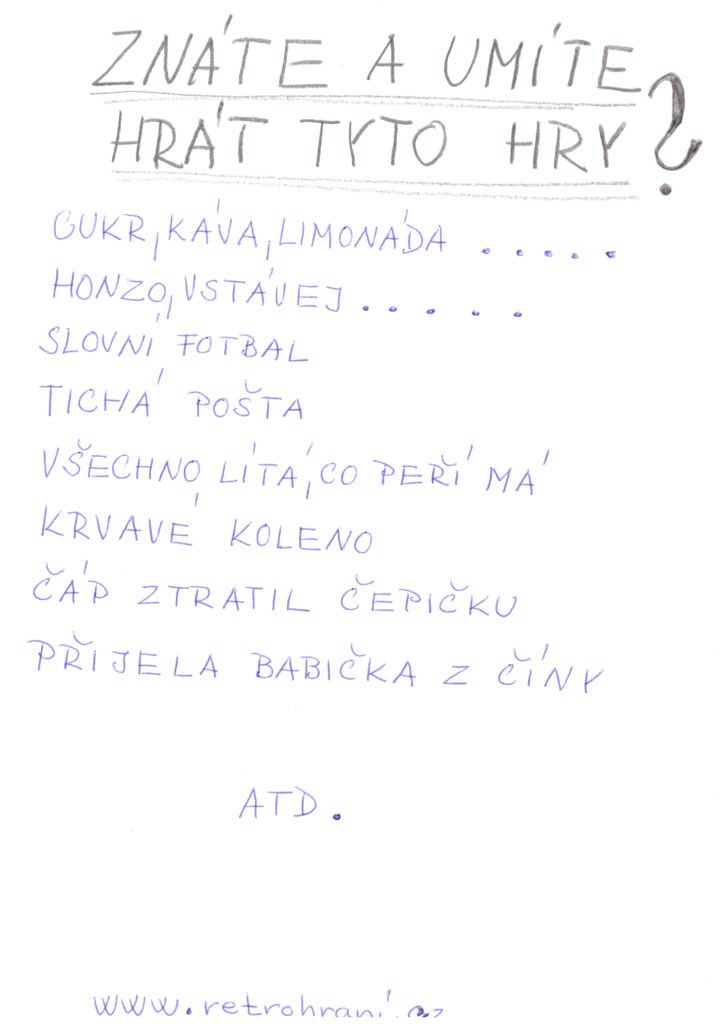 ZNÁTE A UMÍTE
HRÁT TYTO HRY?
CUKR, KÁVA, LIMONÁDA .....
HONZO, VSTÁVEJ .....
SLOVNÍ FOTBAL
TICHÁ POŠTA
VŠECHNO LÍTÁ, CO PEŘÍ MÁ
KRVAVÉ KOLENO
ČÁP ZTRATIL ČEPIČKU
PŘIJELA BABIČKA Z ČÍNY
ATD.
www.retrohraní.cz